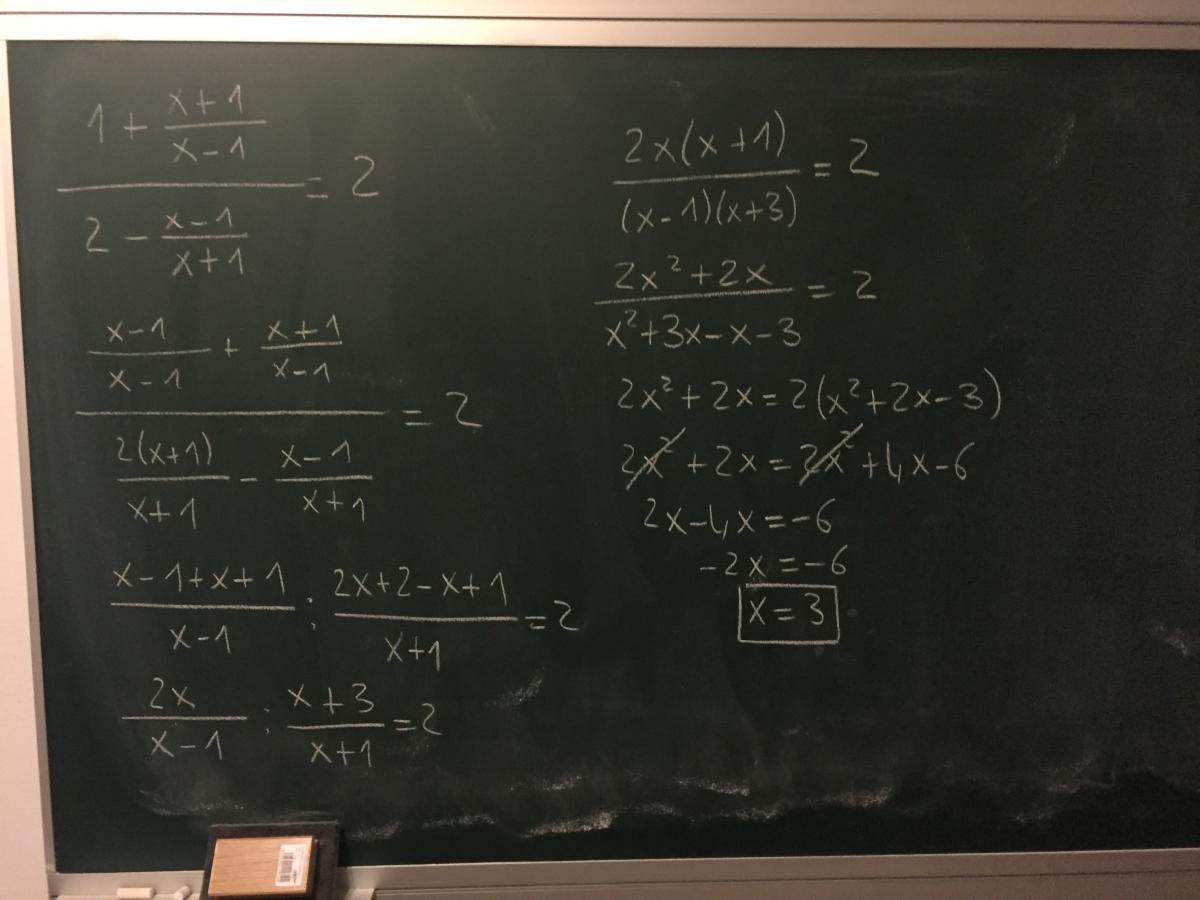 1 + (x+1)/(x-1)
―――――― = 2
2 - (x-1)/(x+1)
(x-1)/(x-1) + (x+1)/(x-1)
―――――― = 2
2(x+1)/(x+1) - (x-1)/(x+1)
(x-1+x+1)/(x-1) : (2x+2-x+1)/(x+1) = 2
2x/(x-1) : (x+3)/(x+1) = 2
2x(x+1)/((x-1)(x+3)) = 2
(2x²+2x)/(x²+3x-x-3) = 2
2x²+2x=2(x²+2x-3)
2x²+2x=2x²+4x-6
2x-4x=-6
-2x=-6
x=3